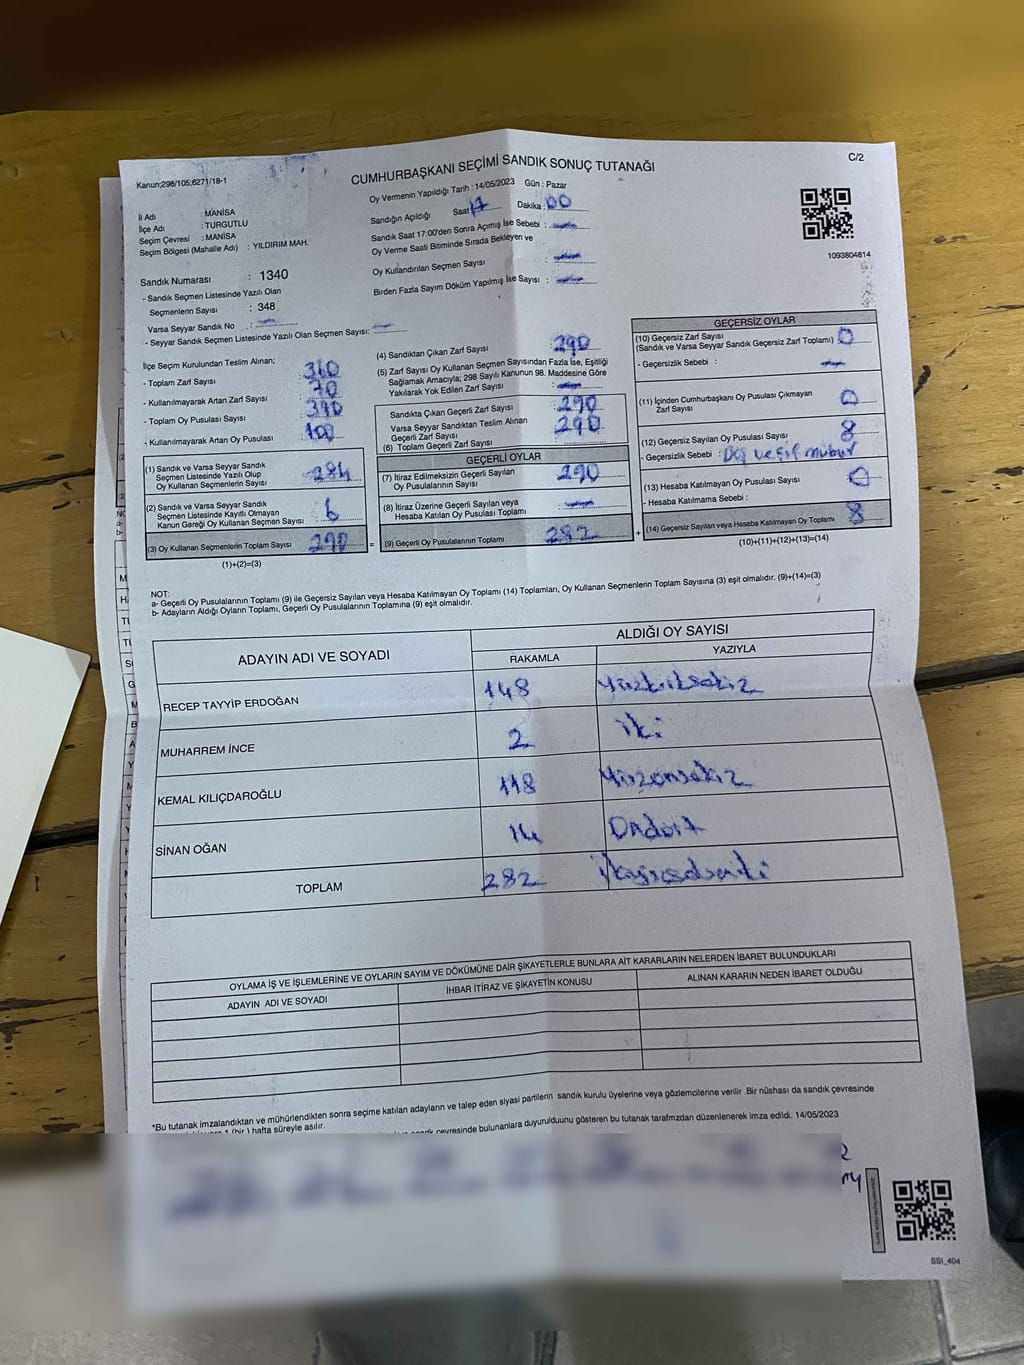 Kanun;298/105,6271/18-1
CUMHURBAŞKANI SEÇİMİ SANDIK SONUÇ TUTANAĞI
C/2
İl Adı : MANİSA
İlçe Adı : TURGUTLU
Seçim Çevresi : MANİSA
Seçim Bölgesi (Mahalle Adı) : YILDIRIM MAH.
Oy Vermenin Yapıldığı Tarih : 14/05/2023 Gün : Pazar
Sandığın Açıldığı Saat 17 Dakika : 00
Sandık Saat 17:00'den Sonra Açımış İse Sebebi :
Oy Verme Saati Bitiminde Sırada Bekleyen ve
Oy Kullandırılan Seçmen Sayısı :
Birden Fazla Sayım Döküm Yapılmış İse Sayısı :
1093804814
Sandık Numarası : 1340
- Sandık Seçmen Listesinde Yazılı Olan
Seçmenlerin Sayısı : 348
Varsa Seyyar Sandık No :
- Seyyar Sandık Seçmen Listesinde Yazılı Olan Seçmen Sayısı:
İlçe Seçim Kurulundan Teslim Alınan;
- Toplam Zarf Sayısı : 360
- Kullanılmayarak Artan Zarf Sayısı : 70
- Toplam Oy Pusulası Sayısı : 390
- Kullanılmayarak Artan Oy Pusulası : 100
(1) Sandık ve Varsa Seyyar Sandık
Seçmen Listesinde Yazılı Olup
Oy Kullanan Seçmenlerin Sayısı : 284
(2) Sandık ve Varsa Seyyar Sandık
Seçmen Listesinde Kayıtlı Olmayan
Kanun Gereği Oy Kullanan Seçmen Sayısı : 6
(3) Oy Kullanan Seçmenlerin Toplam Sayısı : 290
(1)+(2)=(3)
(4) Sandıktan Çıkan Zarf Sayısı : 290
(5) Zarf Sayısı Oy Kullanan Seçmen Sayısından Fazla İse, Eşitliği
Sağlamak Amacıyla; 298 Sayılı Kanunun 98. Maddesine Göre
Yakılarak Yok Edilen Zarf Sayısı :
Sandıkta Çıkan Geçerli Zarf Sayısı : 290
Varsa Seyyar Sandıktan Teslim Alınan
Geçerli Zarf Sayısı : 290
(6) Toplam Geçerli Zarf Sayısı :
GEÇERLİ OYLAR
(7) İtiraz Edilmeksizin Geçerli Sayılan
Oy Pusulalarının Sayısı : 290
(8) İtiraz Üzerine Geçerli Sayılan veya
Hesaba Katılan Oy Pusulası Toplamı :
= (9) Geçerli Oy Pusulalarının Toplamı : 282 +
GEÇERSİZ OYLAR
(10) Geçersiz Zarf Sayısı
(Sandık ve Varsa Seyyar Sandık Geçersiz Zarf Toplamı) : 0
- Geçersizlik Sebebi :
(11) İçinden Cumhurbaşkanı Oy Pusulası Çıkmayan
Zarf Sayısı : 0
(12) Geçersiz Sayılan Oy Pusulası Sayısı : 8
- Geçersizlik Sebebi :
(13) Hesaba Katılmayan Oy Pusulası Sayısı : 0
- Hesaba Katılmama Sebebi :
(14) Geçersiz Sayılan veya Hesaba Katılmayan Oy Toplamı : 8
(10)+(11)+(12)+(13)=(14)
NOT:
a- Geçerli Oy Pusulalarının Toplamı (9) ile Geçersiz Sayılan veya Hesaba Katılmayan Oy Toplamı (14) Toplamları, Oy Kullanan Seçmenlerin Toplam Sayısına (3) eşit olmalıdır. (9)+(14)=(3)
b- Adayların Aldığı Oyların Toplamı, Geçerli Oy Pusulalarının Toplamına (9) eşit olmalıdır.
ADAYIN ADI VE SOYADI
ALDIĞI OY SAYISI
RAKAMLA YAZIYLA
RECEP TAYYİP ERDOĞAN 148 Yüzkırksekiz
MUHARREM İNCE 2 iki
KEMAL KILIÇDAROĞLU 118 Yüzonsekiz
SİNAN OĞAN 14 Ondört
TOPLAM 282
OYLAMA İŞ VE İŞLEMLERİNE VE OYLARIN SAYIM VE DÖKÜMÜNE DAİR ŞİKAYETLERLE BUNLARA AİT KARARLARIN NELERDEN İBARET BULUNDUKLARI
ADAYIN ADI VE SOYADI İHBAR İTİRAZ VE ŞİKAYETİN KONUSU ALINAN KARARIN NEDEN İBARET OLDUĞU
*Bu tutanak imzalandıktan ve mühürlendikten sonra seçime katılan adayların ve talep eden siyasi partilerin sandık kurulu üyelerine veya gözlemcilerine verilir .Bir nüshası da sandık çevresinde
1 (bir ) hafta süreyle asılır.
çevresinde bulunanlara duyurulduunu gösteren bu tutanak tarafmzdan düzenlenerek imza edildi. 14/05/2023
SSI_404